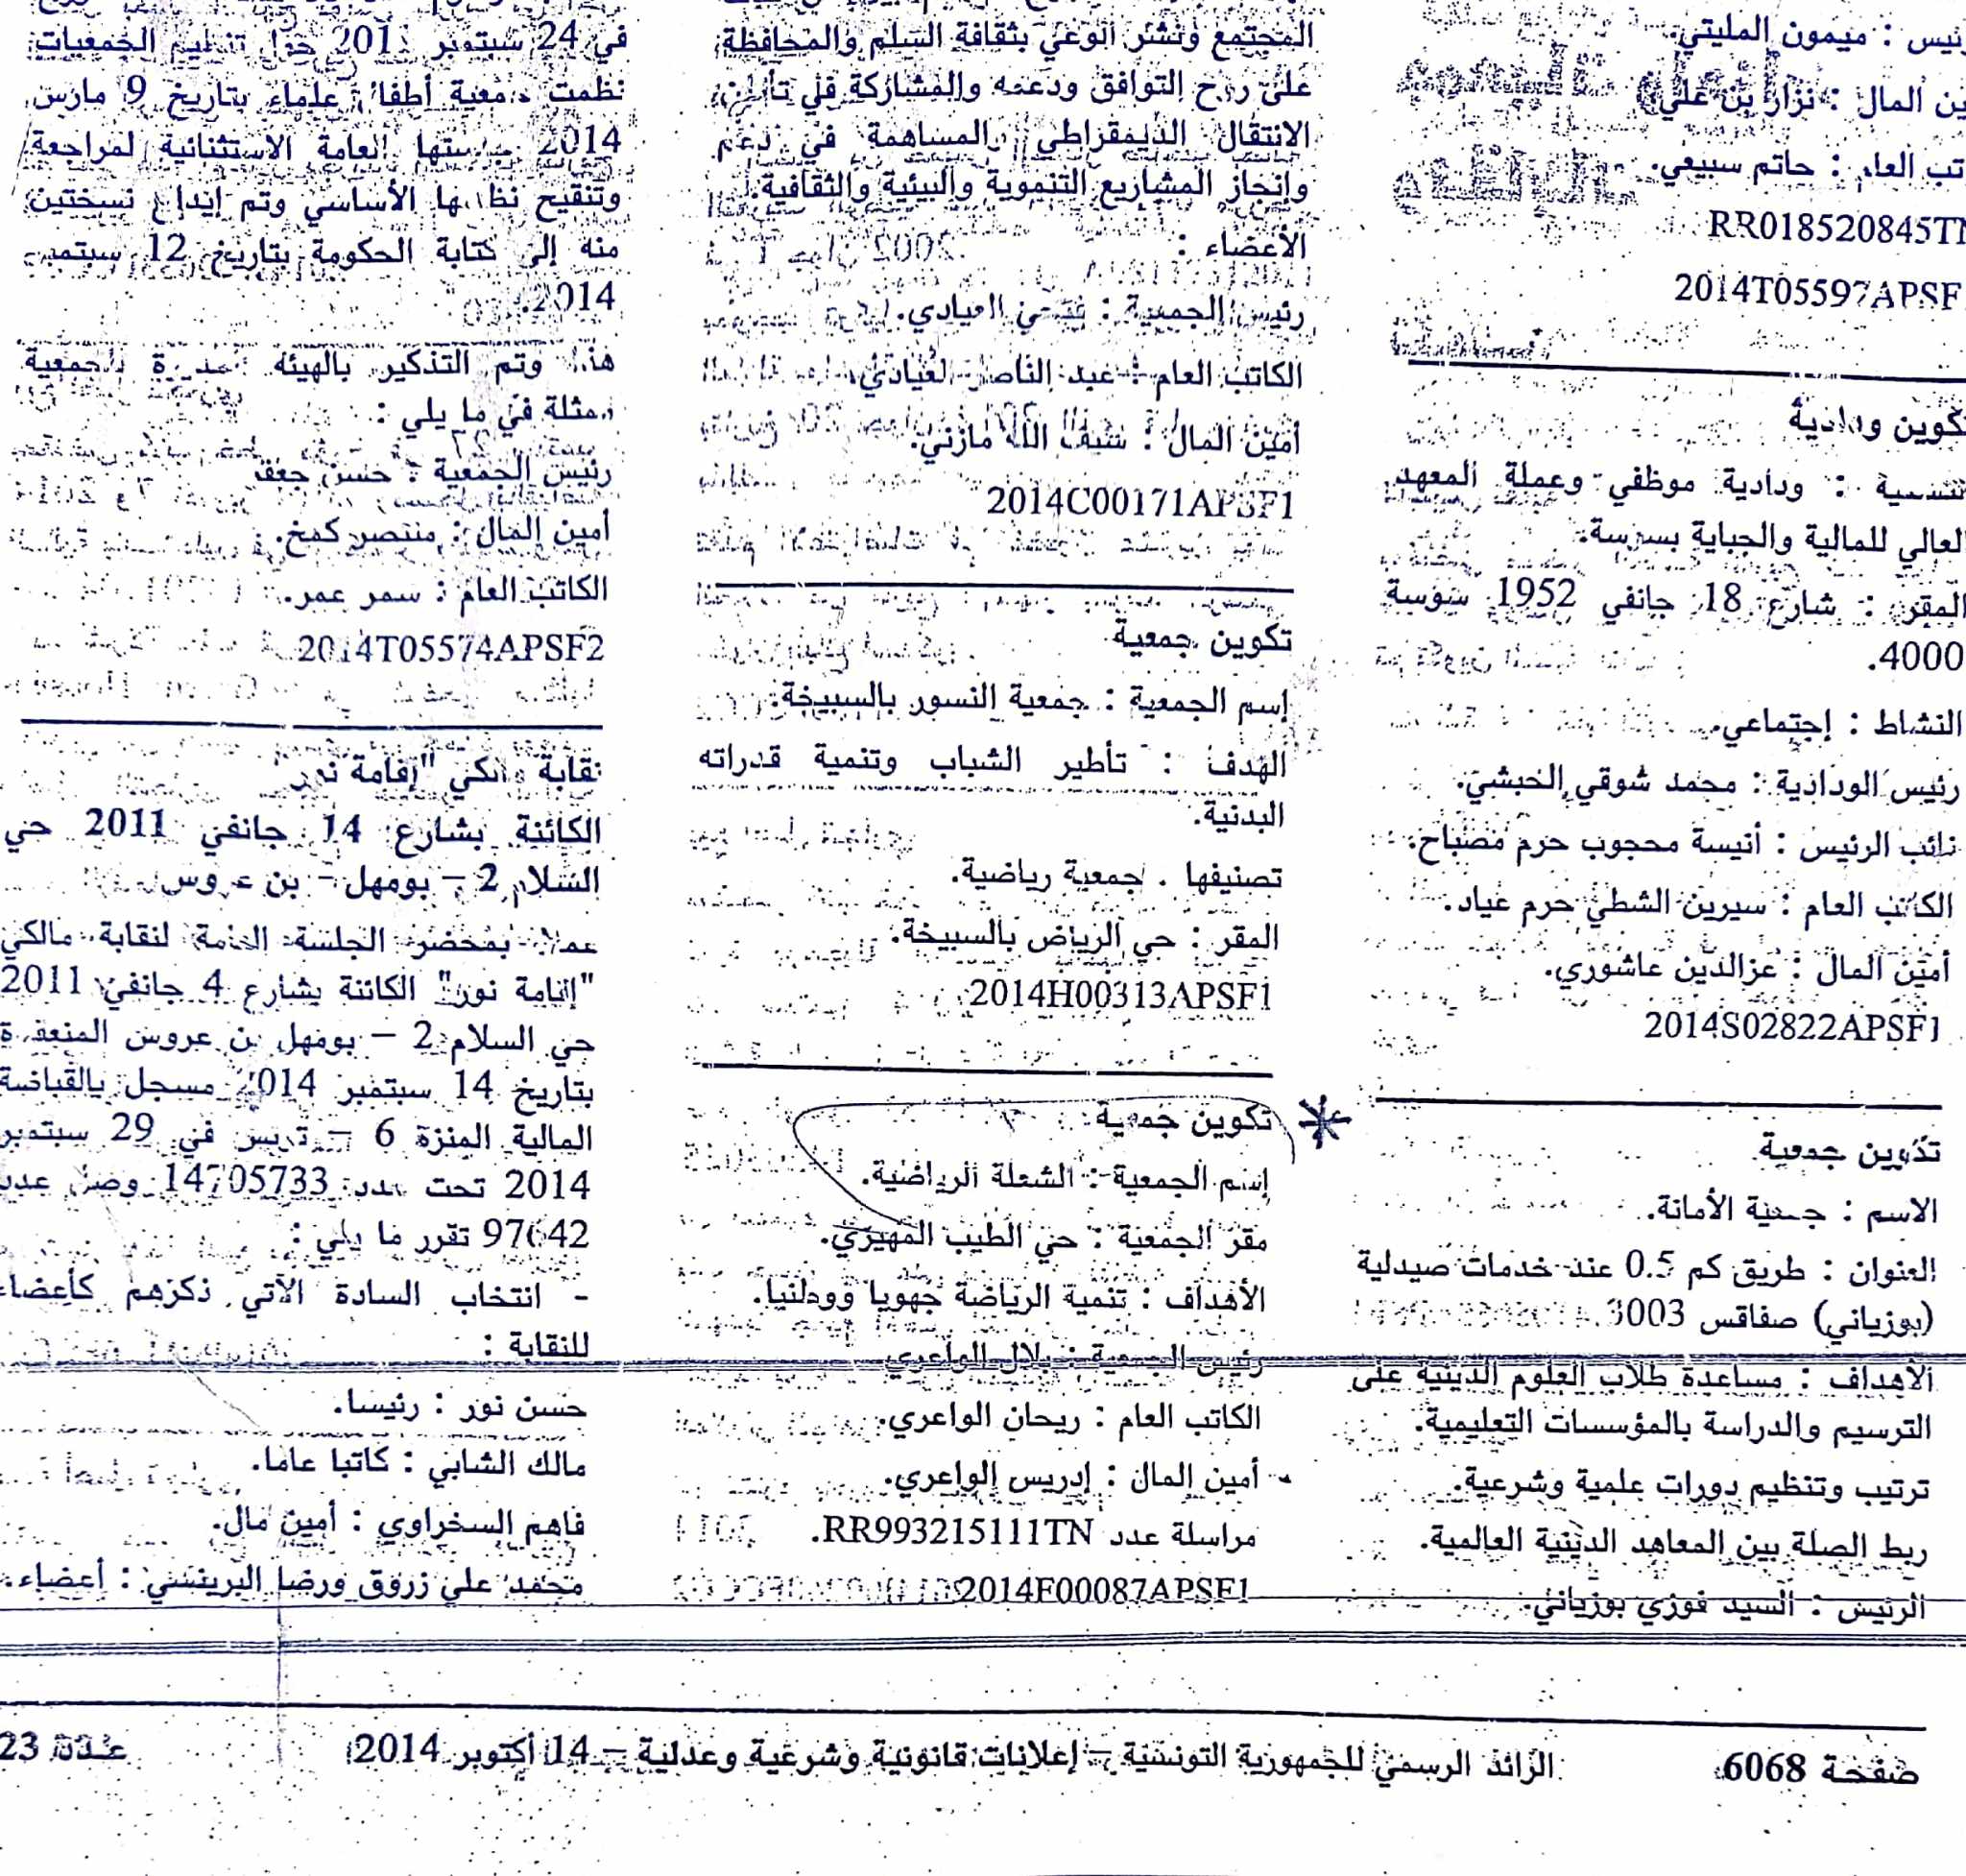 رئيس : ميمون المليتي.
أمين المال : نزار بن علي
الكاتب العام : حاتم سبيعي.
RR018520845TN
2014T05597APSF
تكوين ودادية
التسمية : ودادية موظفي وعملة المعهد
العالي للمالية والجباية بسوسة.
المقر : شارع 18 جانفي 1952 سوسة
4000.
النشاط : إجتماعي.
رئيس الودادية : محمد شوقي الخبشي.
نائب الرئيس : أنيسة محجوب حرم مصباح.
الكاتب العام : سيرين الشطي حرم عياد.
أمين المال : عزالدين عاشوري.
2014S02822APSF1
تكوين جمعية
الاسم : جمعية الأمانة.
العنوان : طريق كم 0.5 عند خدمات صيدلية
(بوزياني) صفاقس 3003.
الأهداف : مساعدة طلاب العلوم الدينية على
الترسيم والدراسة بالمؤسسات التعليمية.
ترتيب وتنظيم دورات علمية وشرعية.
ربط الصلة بين المعاهد الدينية العالمية.
الرئيس : السيد فوزي بوزياني.
المجتمع ونشر الوعي بثقافة السلم والمحافظة
على روح التوافق ودعمه والمشاركة في تأمين
الانتقال الديمقراطي والمساهمة في دعم
وإنجاز المشاريع التنموية والبيئية والثقافية.
الأعضاء :
رئيس الجمعية : فتحي العيادي.
الكاتب العام : عبد الناصر العيادي.
أمين المال : سيف الله مازني.
2014C00171APSF1
تكوين جمعية
إسم الجمعية : جمعية النسور بالسبيخة.
الهدف : تأطير الشباب وتنمية قدراته
البدنية.
تصنيفها : جمعية رياضية.
المقر : حي الرياض بالسبيخة.
2014H00313APSF1
تكوين جمعية
إسم الجمعية : الشعلة الرياضية.
مقر الجمعية : حي الطيب المهيري.
الأهداف : تنمية الرياضة جهويا ووطنيا.
رئيس الجمعية : بلال الواعري
الكاتب العام : ريحان الواعري.
أمين المال : إدريس الواعري.
مراسلة عدد RR993215111TN.
2014F00087APSF1
في 24 سبتمبر 2011 حول تنظيم الجمعيات
نظمت جمعية أطفال علماء بتاريخ 9 مارس
2014 جلستها العامة الاستثنائية لمراجعة
وتنقيح نظامها الأساسي وتم إيداع نسختين
منه إلى كتابة الحكومة بتاريخ 12 سبتمبر
2014.
هذا وتم التذكير بالهيئة المديرة للجمعية
ممثلة في ما يلي :
رئيس الجمعية : حسن جعفر
أمين المال : منتصر كمخ.
الكاتب العام : سمر عمر.
2014T05574APSF2
نقابة مالكي "إقامة نور"
الكائنة بشارع 14 جانفي 2011 حي
السلام 2 – بومهل – بن عروس
عملا بمحضر الجلسة العامة لنقابة مالكي
"إقامة نور" الكائنة بشارع 4 جانفي 2011
حي السلام 2 – بومهل بن عروس المنعقدة
بتاريخ 14 سبتمبر 2014 مسجل بالقباضة
المالية المنزة 6 – تونس في 29 سبتمبر
2014 تحت عدد 14705733 وصل عدد
97642 تقرر ما يلي :
- انتخاب السادة الآتي ذكرهم كأعضاء
للنقابة :
حسن نور : رئيسا.
مالك الشابي : كاتبا عاما.
فاهم السخراوي : أمين مال.
محمد علي زروق ورضا البرينسي : أعضاء.
صفحة 6068
الرائد الرسمي للجمهورية التونسية – إعلانات قانونية وشرعية وعدلية – 14 أكتوبر 2014
عدد 23